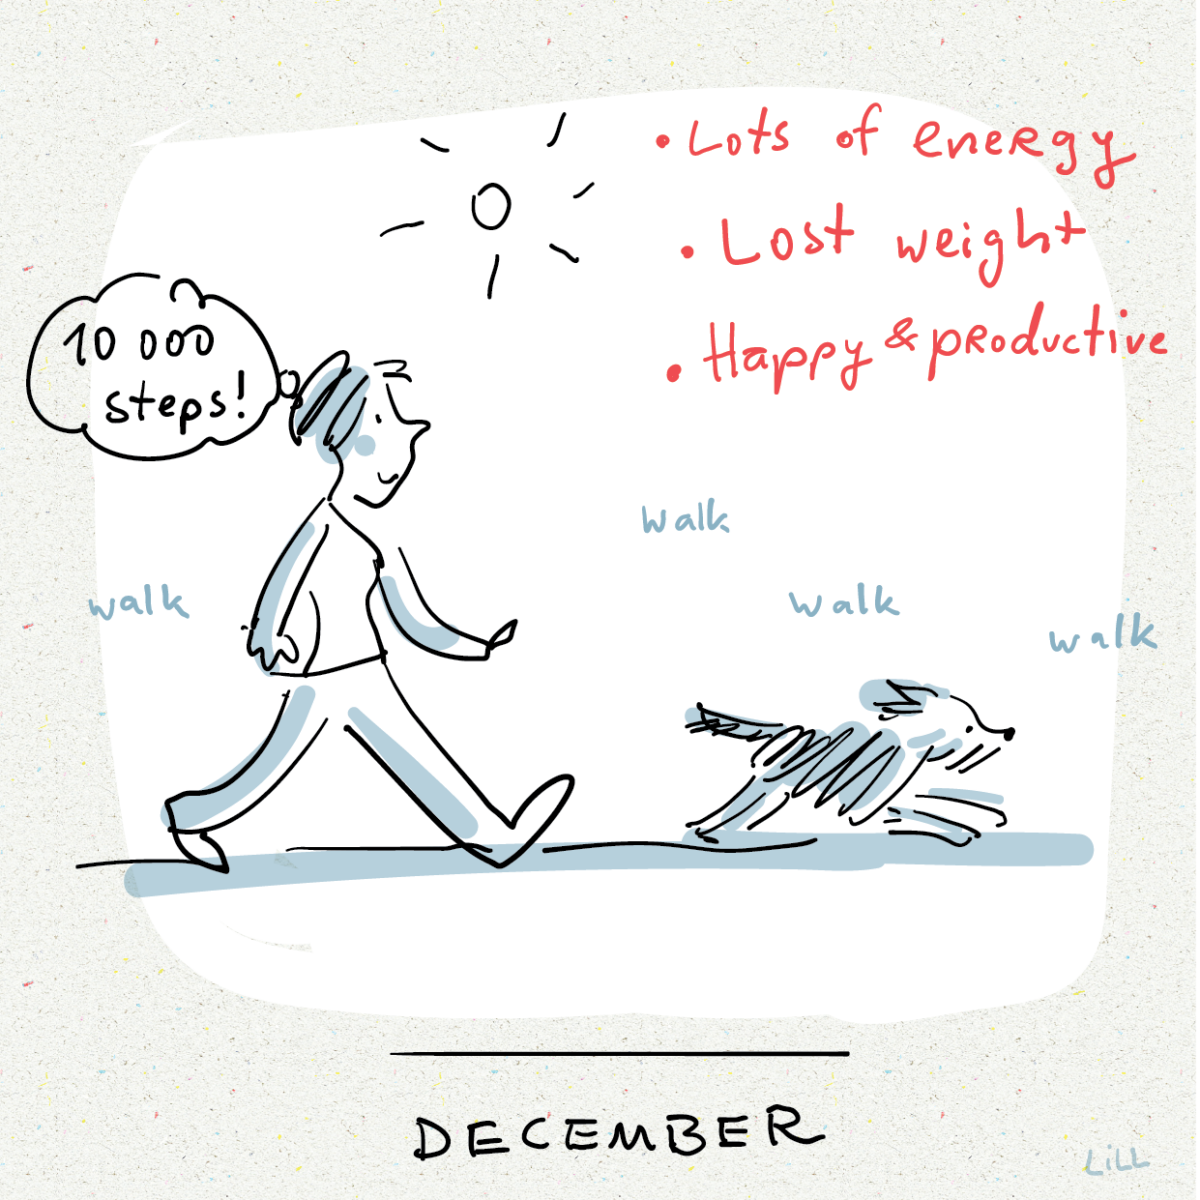 • Lots of energy
• Lost weight
• Happy & productive
10 000
steps!
walk
walk
walk
walk
DECEMBER
LiLL